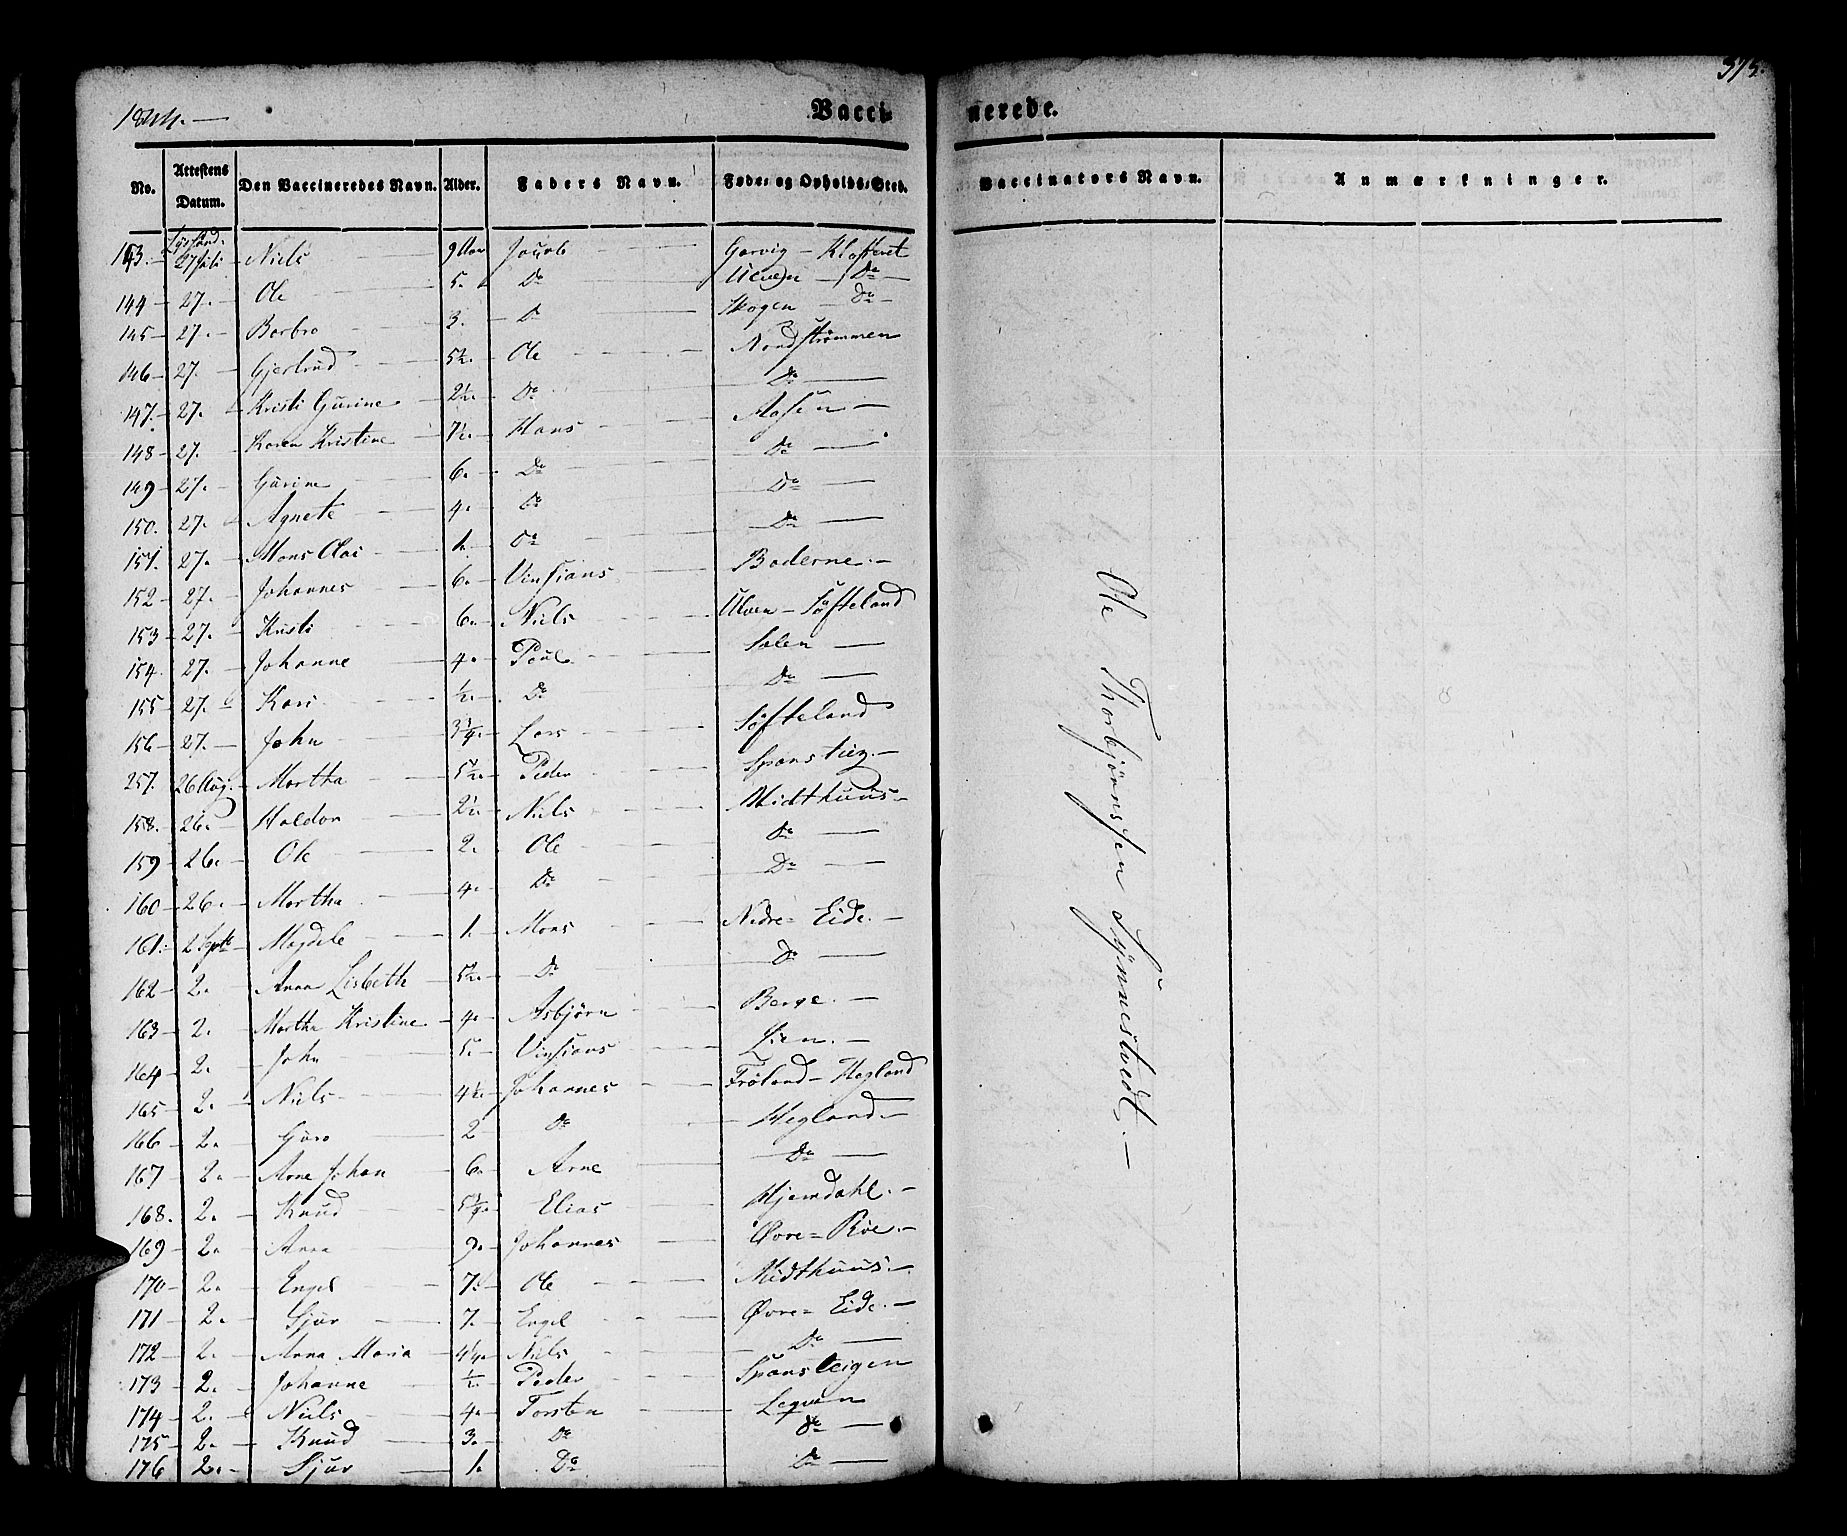 1844.—
375.
Vaccinerede.
No. Attestens Datum. Den Vaccineredes Navn. Alder. Faders Navn. Føde- og Opholds-Sted. Vaccinators Navn. Anmærkninger.
143.— 27 Juli Niels 9 Aar Jacob Garvig – Klosteret
144 — 27. — Ole 5. Do — Do —
145 — 27. — Barbro 3. Do Skogen — Do —
146 — 27. — Gjertrud 5½. Ole Nordstrømmen
147. — 27. Kristi Gurine 2½. Do Do —
148 — 27. Karen Kristine 7½. Hans Aasen —
149 — 27. — Gurine 6. Do Do —
150. 27. Agnete 4. Do Do —
151. — 27. Mons Clai 1. Do Do —
152 — 27. — Johannes 6. Vinsians Boderne. —
153 — 27. — Kristi 6. Niels Ulven – Søfteland
154. 27. — Johanne 4. Poul Salen —
155 — 27. Kari ½. Do Do —
156 — 27. — John 3¼. Lars Søfteland
257. 26 Aug. — Martha 5½. Peder Spansteig. —
158. — 26. Haldor 2½. Niels Midthuus —
159 — 26. Ole 2. Ole Do —
160 — 26. — Martha 4. Do Do —
161. — 2 Septb — Magdele 1. Mons Nedre = Eide. —
162 — 2. Anna Lisbeth 5½. Do Do —
163 — 2. Martha Kristine 4. Asbjørn Berge. —
164 — 2. John 5. Vinsians Lien. —
165 — 2. Niels 4½. Johannes Frøland – Hegland
166 — 2. Guro 2 Do Hegland. —
167 — 2. Arne Johan 6. Arne Do —
168. — 2. Knud 5¾. Elias Hjemdahl. —
169 — 2. Anna 9. Johannes Øvre = Røe. —
170 — 2. Engel 7. Ole Midthuus. —
171 — 2. Sjur 7. Engel Øvre = Eide. —
172 — 2. Anna Maria 4¼. Niels Do —
173 — 2. Johanne ½. Peder Spansteigen
174 — 2. Niels 4. Torsten Legven
175 — 2. Knud 3. Do Do —
176 2. — Sjur 1. Do Do —
Ole Thorbjørnssen Synnestvedt. —